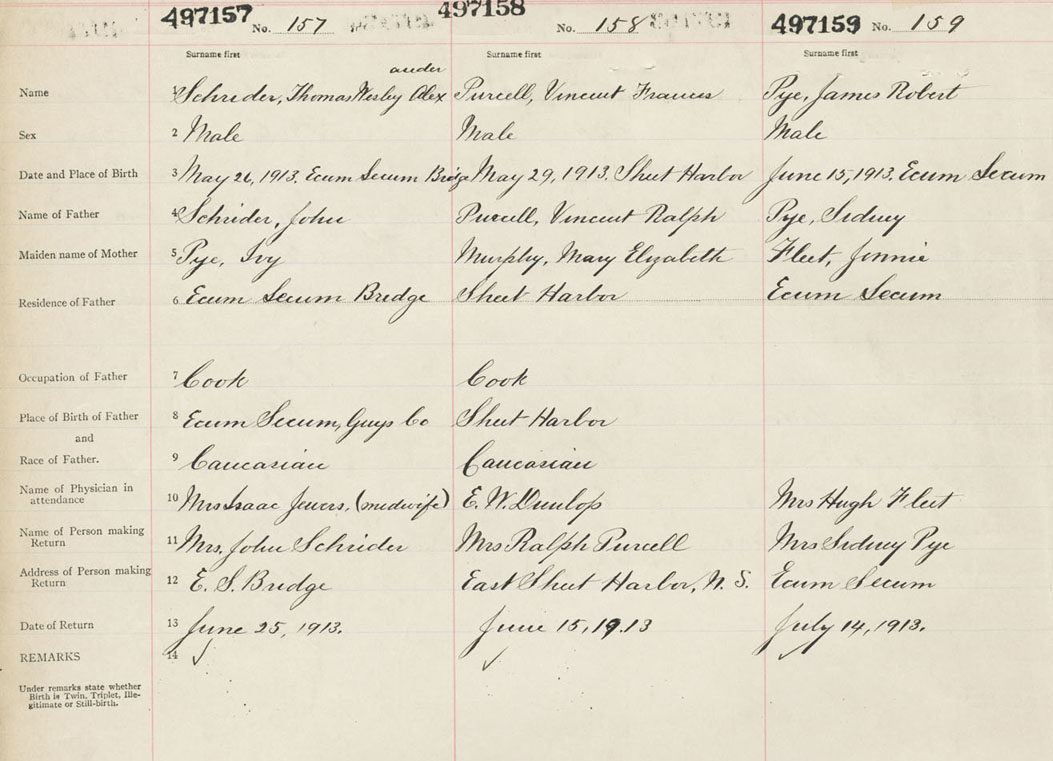 497157 No. 157 497158 No. 158 497159 No. 159
Surname first Surname first Surname first
ander
Name 1 Schrider, Thomas Wesley Alex Purcell, Vincent Frances Pye, James Robert
Sex 2 Male Male Male
Date and Place of Birth 3 May 26, 1913. Ecum Secum Bridge May 29, 1913. Sheet Harbor June 15, 1913. Ecum Secum
Name of Father 4 Schrider, John Purcell, Vincent Ralph Pye, Sidney
Maiden name of Mother 5 Pye, Ivy Murphy, Mary Elizabeth Fleet, Jinnie
Residence of Father 6 Ecum Secum Bridge Sheet Harbor Ecum Secum
Occupation of Father 7 Cook Cook
Place of Birth of Father 8 Ecum Secum, Guys Co Sheet Harbor
and
Race of Father. 9 Caucasian Caucasian
Name of Physician in
attendance 10 Mrs Isaac Jewers, (midwife) E. W. Dunlop Mrs Hugh Fleet
Name of Person making
Return 11 Mrs. John Schrider Mrs Ralph Purcell Mrs Sidney Pye
Address of Person making
Return 12 E. S. Bridge East Sheet Harbor, N. S. Ecum Secum
Date of Return 13 June 25, 1913. June 15, 19.13 July 14, 1913.
REMARKS 14
Under remarks state whether
Birth is Twin, Triplet, Ille-
gitimate or Still-birth.